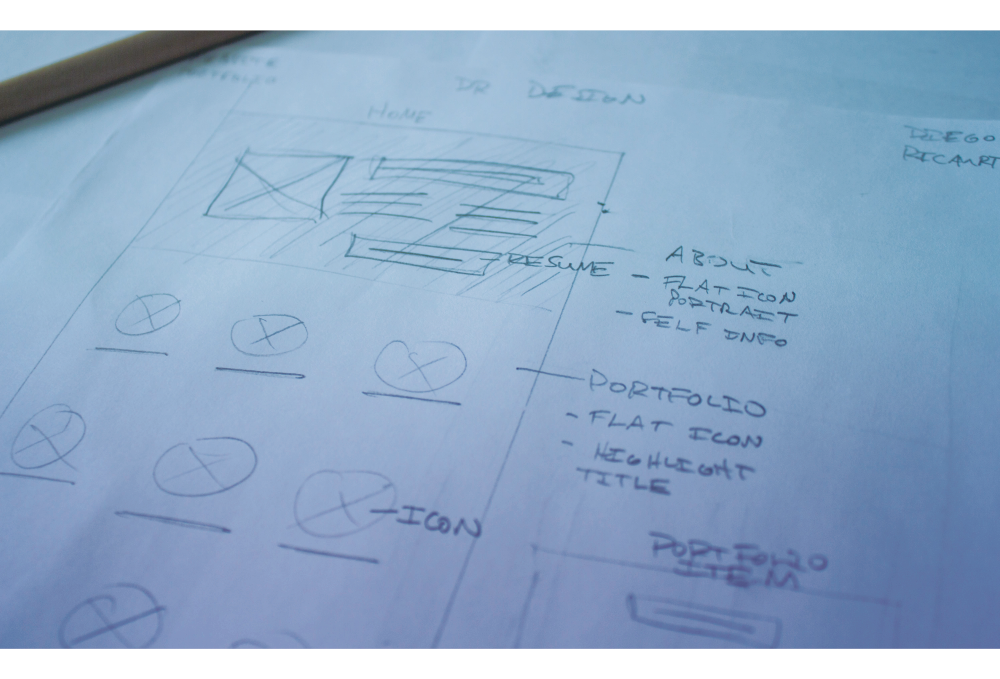 DR DESIGN
HOME
DIEGO
RESUME
ABOUT
- FLAT ICON
PORTRAIT
- SELF INFO
PORTFOLIO
- FLAT ICON
- HIGHLIGHT
TITLE
ICON
PORTFOLIO
ITEM